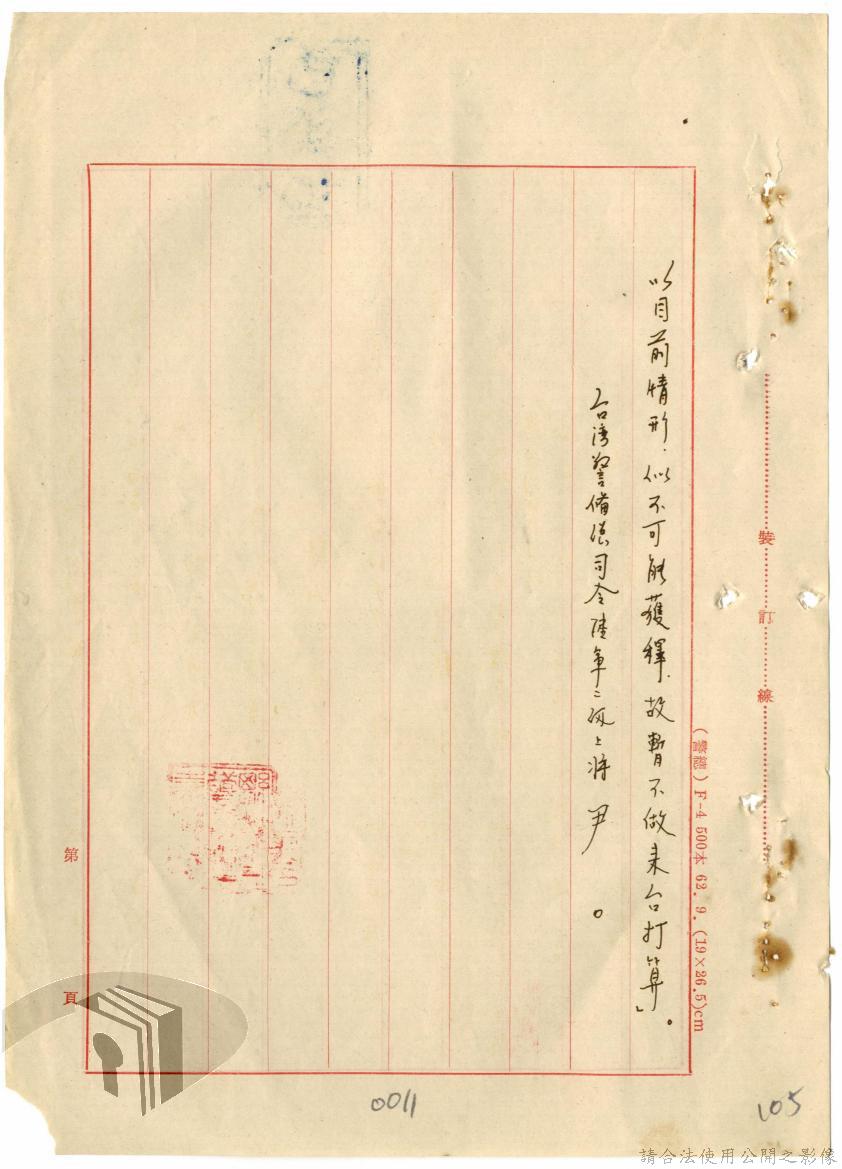 以目前情形.似不可能獲釋.故暫不做来台打算」。
台湾警備總司令陸軍二級上將尹○
裝訂線
(警總) F-4 500本 62. 9. (19×26.5)cm
第 頁
0011
105
請合法使用公開之影像